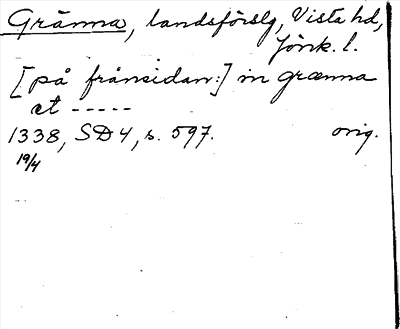 Gränna, landsförslg, Vista hd,
Jönk. l.
[på frånsidan:] in grænna
et -----
1338, SD4, s. 597. orig.
19/4